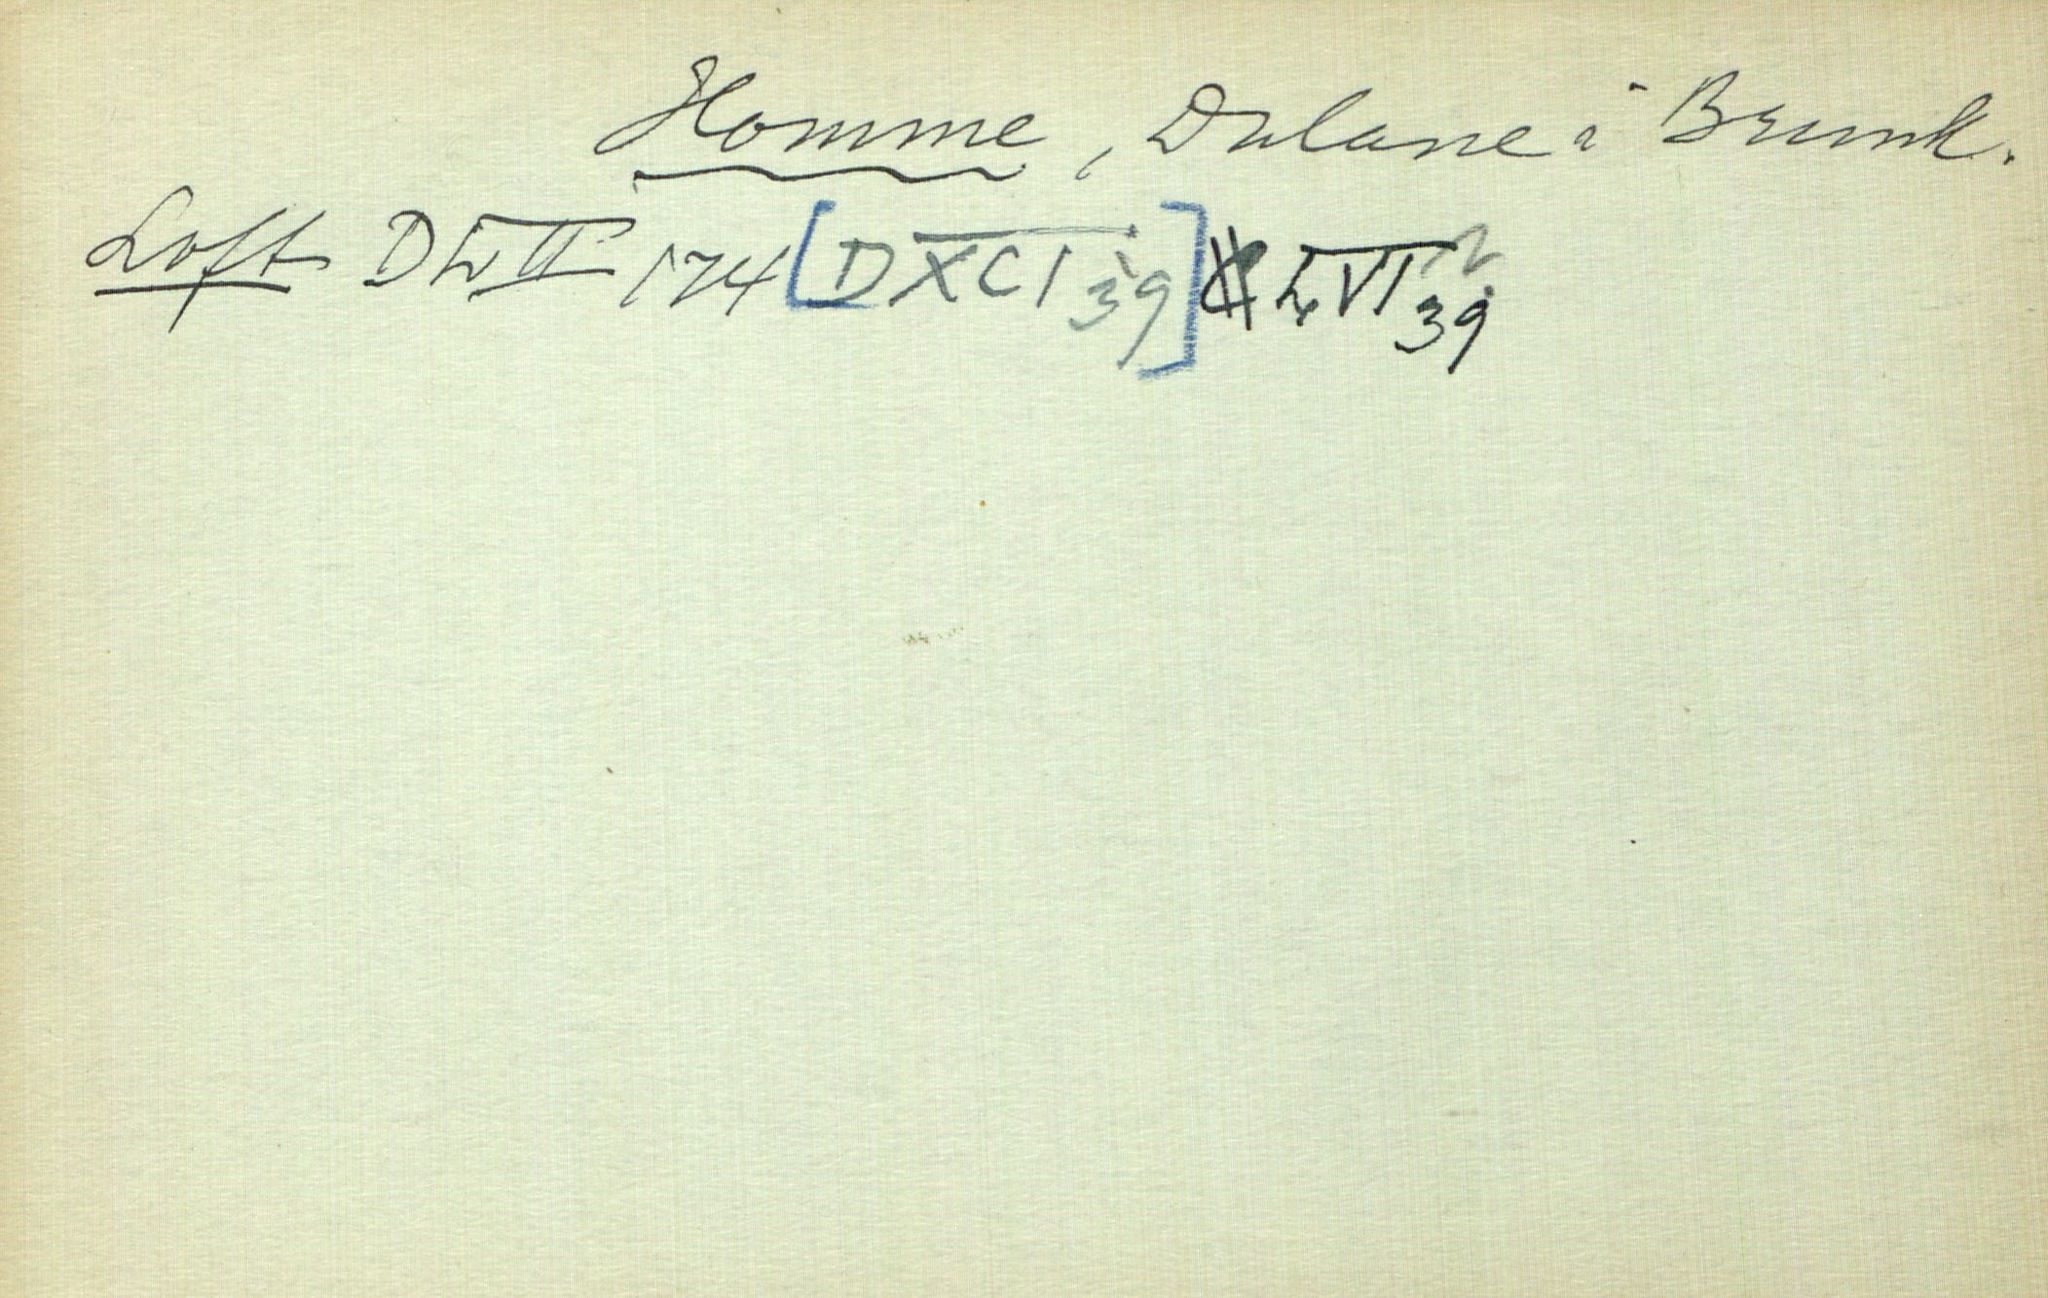 Homme, Dalane i Brunk.
Loft DLII 174 [DXCI 39] LVI 39